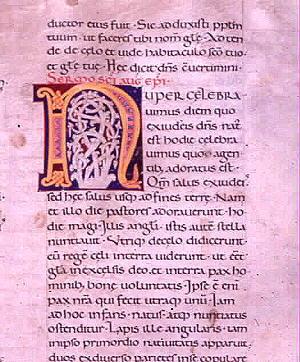 ductor eius fuit. Sic adduxisti pptm
tuum. ut faceres tibi nom gte. Atten
de de celo et vide habitaculo sco tuo
et gte tue. Hec dicit dns. evertimini.
Sermo sci aug epi.
NUPER CELEBRA
vimus diem quo
ex iudeis dns nat
est hodie celebra
vimus quo a gen
tib; adoratus est.
Qm salus ex iudeis
sed hec salus usq; ad fines terre. Nam
et illo die pastores adoraverunt. ho
die magi. Illis angli. istis aute stella
nuntiavit. Utriq; de celo didicerunt.
cu rege celi in terra viderunt. ut eet
gla in excelsis deo. et in terra pax ho
minib; bone voluntatis. Ipse e eni
pax nra qui fecit utraq; unu. Iam
ad hoc infans. natus. atq; nuntiatus
ostenditur. Lapis ille angularis. iam
in ipso primordio nativitatis apparuit
duos ex diverso parietes in se copulare